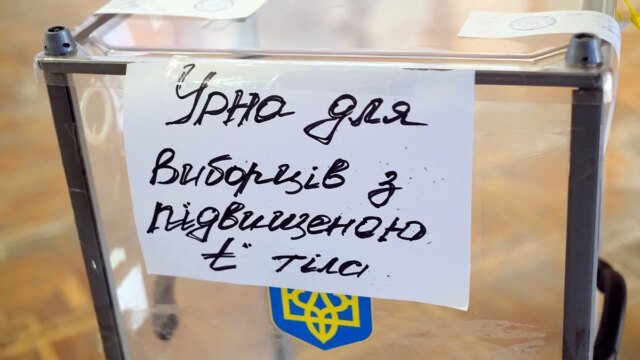 Урна для
виборців з
підвищеною
t° тіла